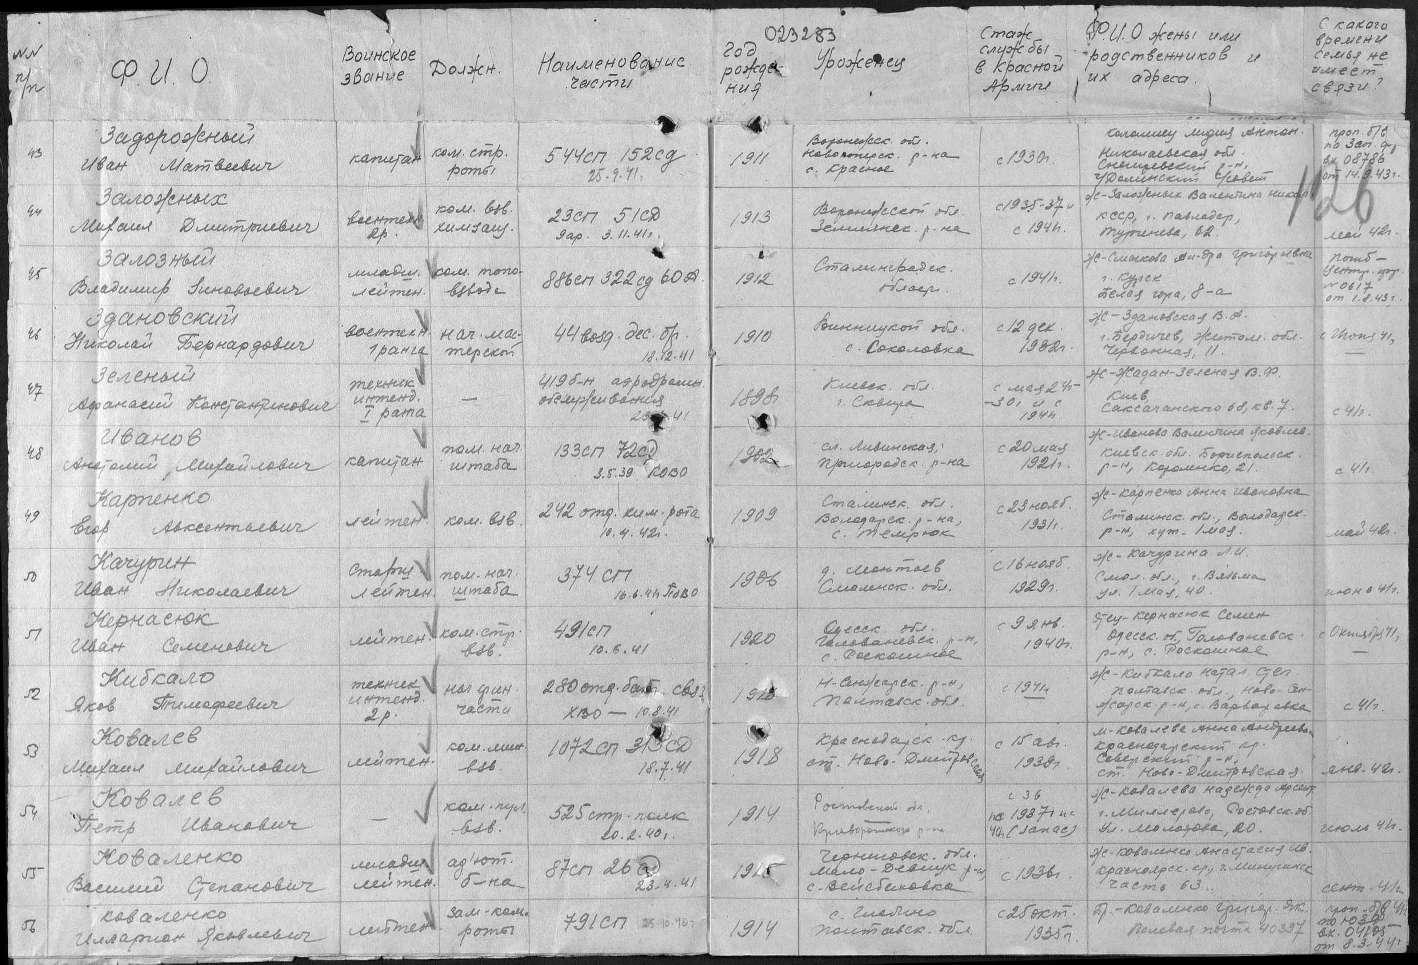 023283
NN п/п
Ф.И.О
Воинское звание
Должн.
Наименование части
Год рожде-ния
Уроженец
Стаж службы в Красной Армии
Ф.И.О жены или родственников и их адреса.
С какого времени семья не имеет связи?
126
43 Задорожный Иван Матвеевич
капитан
ком. стр. роты
544сп 152сд 25.9.41.
1911
Воронежск. обл. р-на с. Красное
с 1930г.
Коломиец Лидия Антон. Николаевская обл. р-н,
проп. б/в вх 08786 от 14.9.43г.
44 Заложных Михаил Дмитриевич
воентехн. 2р.
ком. взв. химзащ.
23сп 51сд 9ар. 3.11.41г.
1913
Воронежской обл. Землянск. р-на
с 1935-37 и с 1941г.
ж-Заложных Валентина Никол. КССР, г. Павлодар, 62
май 42г.
45 Залозный Владимир Зиновьевич
младш. лейтен.
ком. топо-взвода
886сп 322сд 60А
1912
Сталинградск. област.
с 1941г.
ж-Смыкова Ал-дра Григорьевна г. Курск Белая гора, 8-а
погиб- №0617 от 1.8.43г.
46 Здановский Николай Бернардович
воентехн. 1 ранга
нач. мас-терской
44 возд. дес. бр. 18.12.41
1910
Винницкой обл. с. Соколовка
с 12 дек. 1932г.
ж-Здановская В.А. г. Бердичев, Житом. обл. Червонная, 11.
с Июня 41г.
47 Зеленый Афанасий Константинович
техник интенд. I ранга
—
419 б-н аэродромн. обслуживания
1898г
Киевск. обл. г. Сквира
с мая 24г-30г. и с 1941г.
ж-Жадан-Зеленая В.Ф. Киев, Саксаганского 68, кв. 7.
с 41г.
48 Иванов Анатолий Михайлович
капитан
пом. нач. штаба
133сп 72сд 3.5.39 КОВО
1902
сл. Ливинская, Пригородск. р-на
с 20 мая 1921г.
ж-Иванова Валентина Яковлев. Киевск. обл. Бориспольск. р-н, Короленко, 21.
с 41г.
49 Карпенко Егор Авксентьевич
лейтен.
ком. взв.
242 отд. хим. рота 10.4.42г.
1909
Сталинск. обл. Володарск. р-на, с. Темрюк
с 23 нояб. 1931г.
ж-Карпенко Анна Ивановна Сталинск. обл., Володарск. р-н, хут. 1 мая.
май 42г.
50 Качурин Иван Николаевич
Старш. лейтен.
пом. нач. штаба
374 сп 16.6.41 ПОВО
1906
Смоленск. обл.
с 16 нояб. 1929г.
ж-Качурина Л.И. Смол. обл., г. Вязьма ул. 1 Мая, 40.
июнь 41г.
51 Кернасюк Иван Семенович
лейтен.
ком. стр. взв.
491сп 10.6.41
1920
Одесск. обл. Голованевск. р-н, с. Роскошное
с 9 янв. 1940г.
Отец-Кернасюк Семен Одесск. об. Голованевск. р-н, с. Роскошное
с Октября 41г.
—
52 Кибкало Яков Тимофеевич
техник интенд. 2р.
нач фин. части
280 отд. бат. связ. ХВО — 10.8.41
Н-Сенжарск. р-н, Полтавск. обл.
с 1941г.
ж-Кибкало Натал. Степ. Полтавск. обл., Ново-Сен-жарск р-н, с. Варваровка
с 41г.
53 Ковалев Михаил Михайлович
лейтен.
ком. мин. взв.
1072сп 313сд 18.7.41
1918
Краснодарск. кр. ст. Ново-Дмитровская
с 15 авг. 1938г.
м-Ковалева Анна Андреевн. Краснодарский кр. Северский р-н, ст. Ново-Дмитровская
янв. 42г.
54 Ковалев Петр Иванович
—
ком. пул. взв.
525 стр. полк 20.2.40г.
1914
Ростовской об.
с 36 по 1937г. и с 40г. (запас)
ж-Ковалева Надежда г. Миллерово, Ростовск. об. ул. Молотова, 20.
июль 41г.
55 Коваленко Василий Степанович
младш. лейтен.
ад'ют. б-на
87сп 26сд 23.4.41
1915
Черниговск. обл. Мало-Девицк. р-н
с 1936г.
ж-Коваленко Анастасия Ив. Красноярск. кр, г. Минусинск часть 63.
сент. 41г.
56 Коваленко Илларион Яковлевич
лейтен.
зам-ком. роты
791сп
1914
с. Глобино Полтавск. обл.
с 25 окт. 1935г.
Бр.-Коваленко Григор. Як. Полевая почта 40397
проп. б/в вх. 04105 от 8.3.44г.